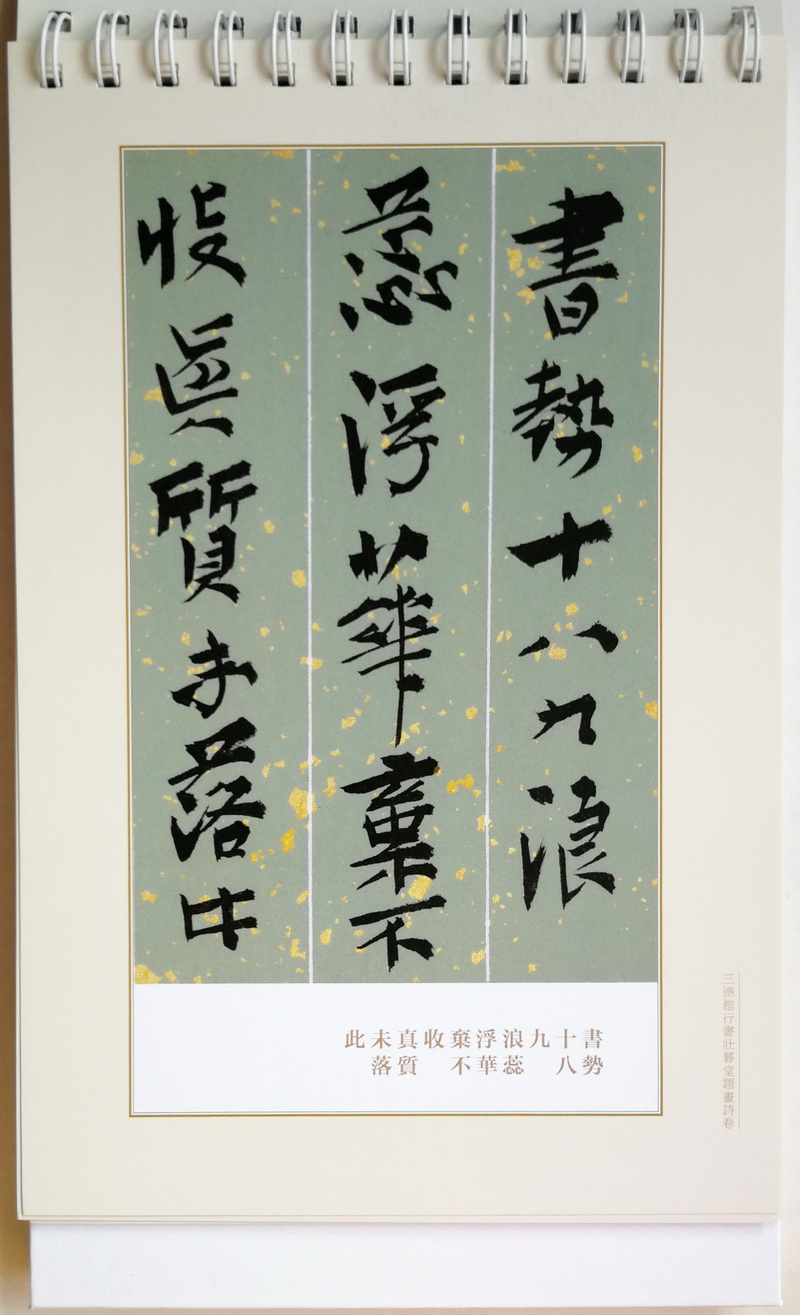 書勢十八九浪
蕊浮華棄不
收眞質未落此
書勢
十八
九
浪蕊
浮華
棄不
收
真質
未落
此
三德館行書壯暮堂題畫詩卷